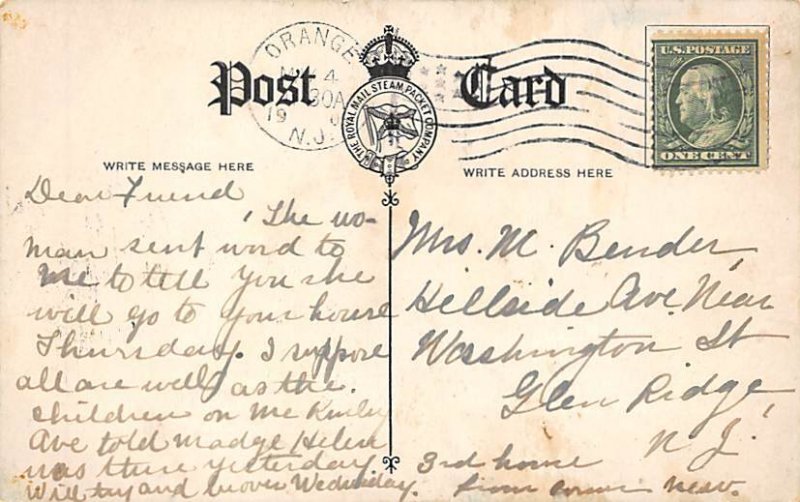 Post Card
ORANGE
4
30A
19
N.J.
THE ROYAL MAIL STEAM PACKET COMPANY
U.S. POSTAGE
ONE CENT
WRITE MESSAGE HERE
Dear Friend
The wo-
man sent word to
me to tell you she
will go to your house
Thursday. I suppose
all are well as the
children on McKinley
Ave told Madge, Helen
was there yesterday
Will try and be over Wednesday.
WRITE ADDRESS HERE
Mrs. M. Bender,
Hillside Ave. Near
Washington St
Glen Ridge,
N. J.
3rd home
from corner near